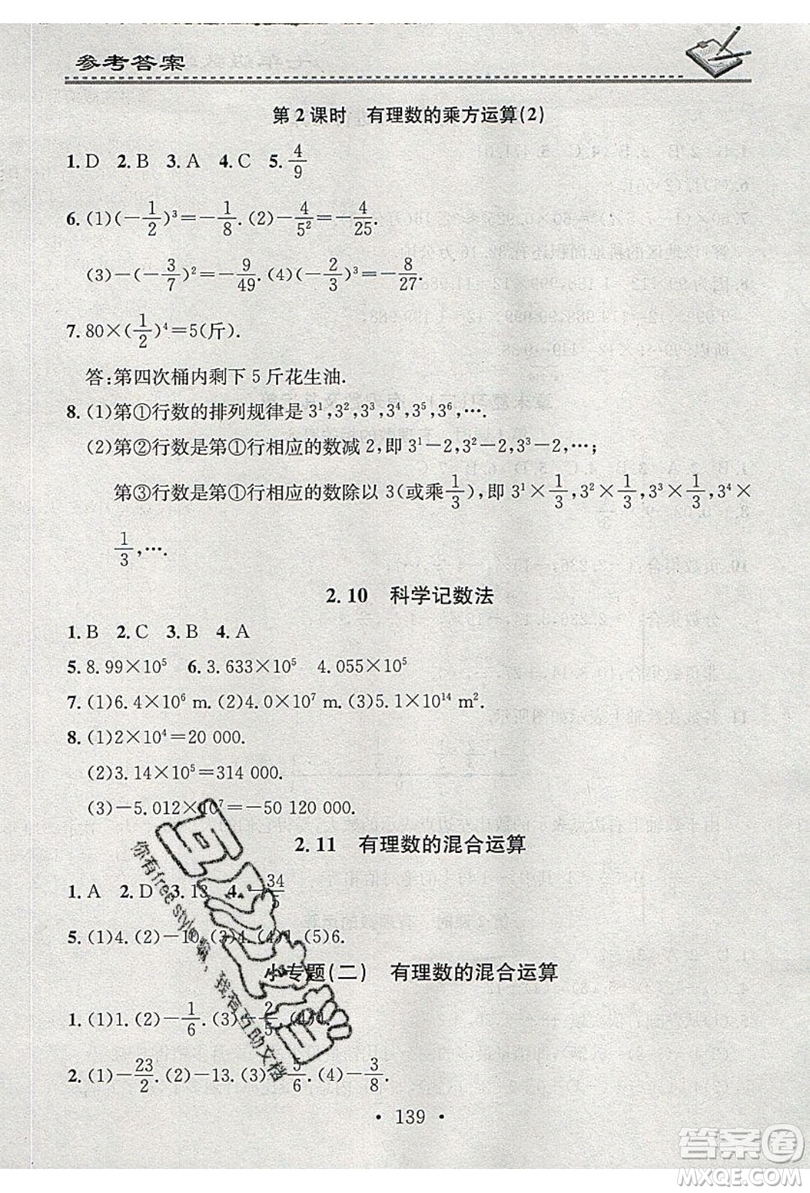 参考答案
第2课时 有理数的乘方运算(2)
1. D 2. B 3. A 4. C 5. 4/9
6. (1)(-1/2)³=-1/8. (2)-4/5²=-4/25.
(3)-(-3/7)²=-9/49. (4)(-2/3)³=-8/27.
7. 80×(1/2)⁴=5(斤).
答:第四次桶内剩下 5 斤花生油.
8. (1)第①行数的排列规律是 3¹,3²,3³,3⁴,3⁵,3⁶,….
(2)第②行数是第①行相应的数减 2,即 3¹-2,3²-2,3³-2,…;
第③行数是第①行相应的数除以 3(或乘1/3),即 3¹×1/3,3²×1/3,3³×1/3,3⁴×
1/3,….
2.10 科学记数法
1. B 2. C 3. B 4. A
5. 8.99×10⁵ 6. 3.633×10⁵ 4.055×10⁵
7. (1)6.4×10⁶ m. (2)4.0×10⁷ m. (3)5.1×10¹⁴ m².
8. (1)2×10⁴=20 000.
(2)3.14×10⁵=314 000.
(3)-5.012×10⁷=-50 120 000.
2.11 有理数的混合运算
1. A 2. D 3. 13 4. -34/5
5. (1)4. (2)-10. (3)4. (4)1. (5)6.
小专题(二) 有理数的混合运算
1. (1)1. (2)-1/6. (3)-2/5. (4)
2. (1)-23/2. (2)-13. (3)5/6. (4)-3/8.
· 139 ·
你有free style吗
我有互助文档
答案圈
MXQE.COM